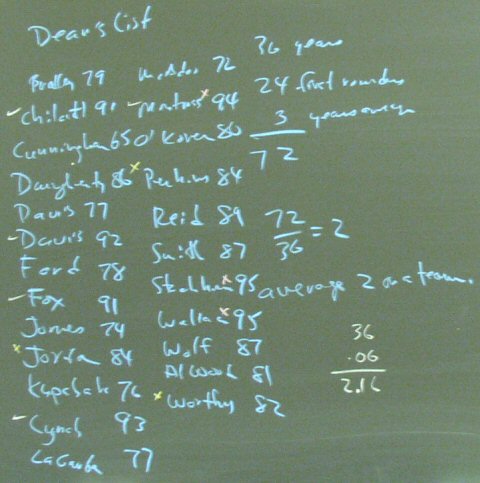 Dean's List
Bradley 79
✓Chilcutt 91
Cunningham 65
Daugherty 86
Davis 77
-Davis 92
Ford 78
-Fox 91
Jones 74
×Jordan 84
Kupchak 76
-Lynch 93
LaGarde 77
McAdoo 72
-Montross× 94
O'Koren 80
×Perkins 84
Reid 89
Smith 87
Stackhouse× 95
Wallace× 95
Wolf 87
Al Wood 81
×Worthy 82
36 years
24 first rounders
3 years average
72
72
36 = 2
average 2 on a team.
36
.06
2.16